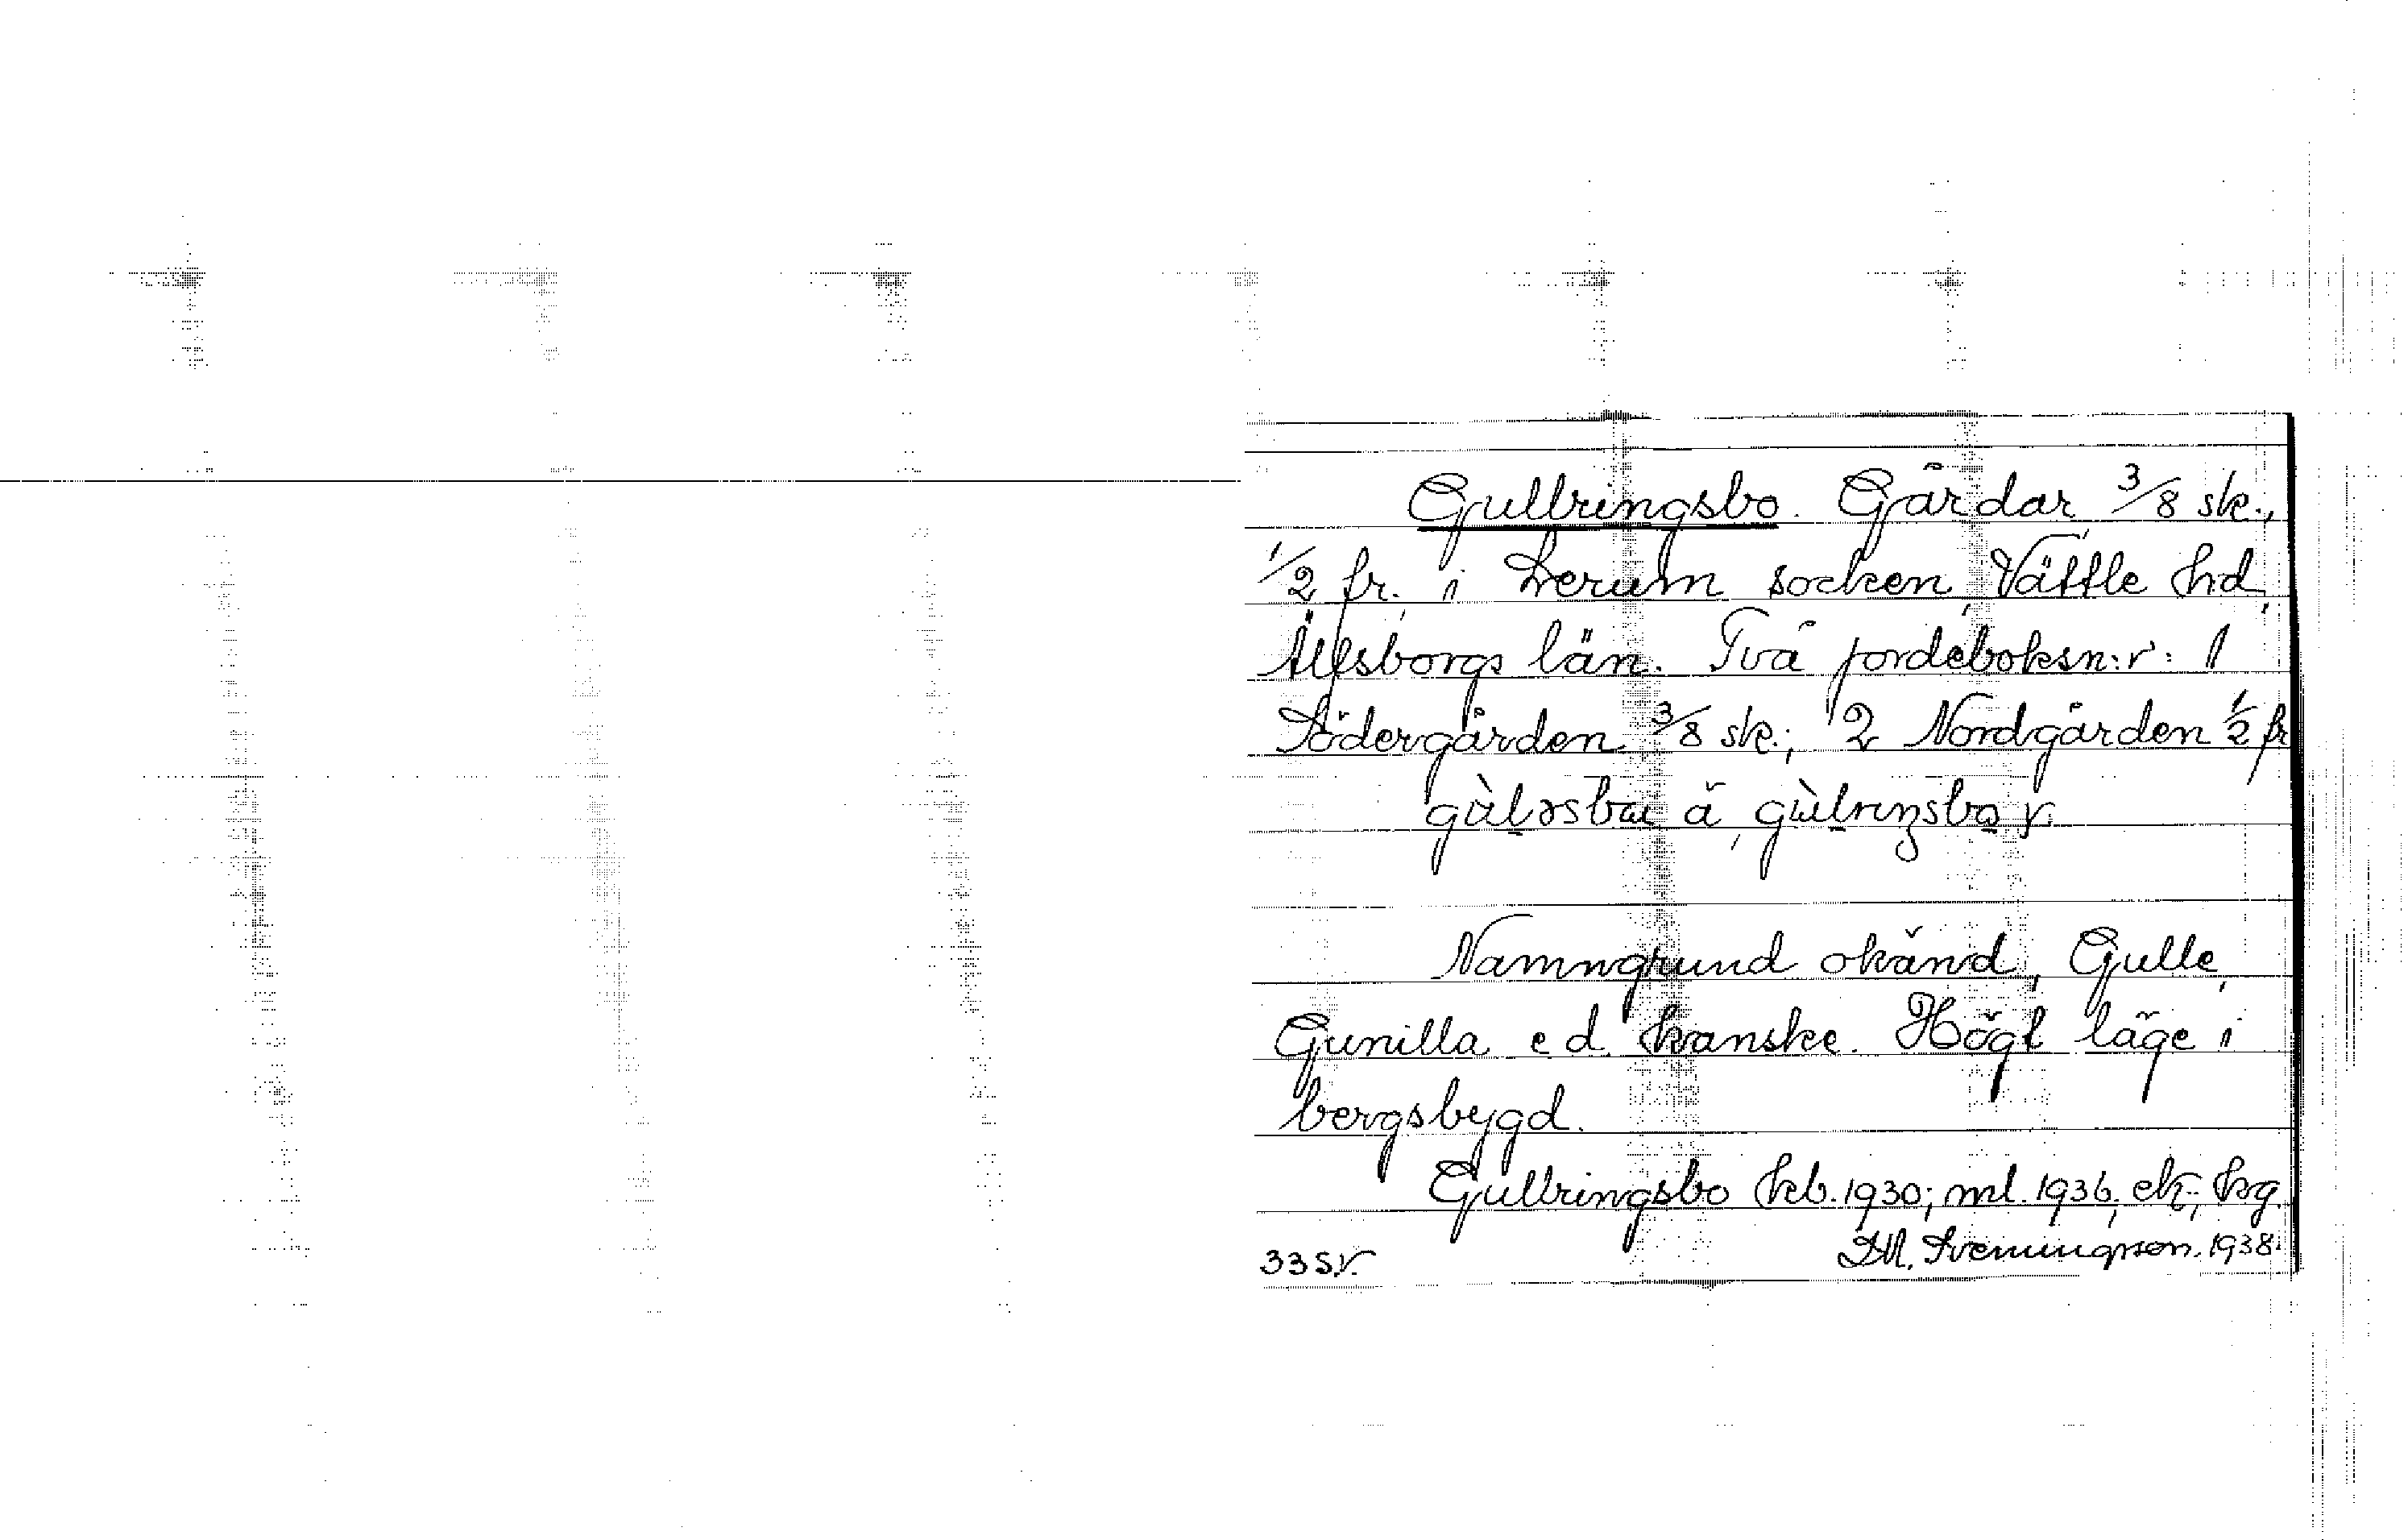 Gullringsbo. Gårdar, 3/8 sk.,
1/2 fr., i Lerum socken, Vättle hd,
Älvsborgs län. Två jordeboksn:r: 1
Södergården 3/8 sk.; 2 Nordgården 1/2 fr
Namngrund okänd, Gulle,
Gunilla e d kanske. Högt läge i
bergsbygd.
Gullringsbo kb. 1930; ml. 1936, ek; hg.
33 S.V. Svenungsson. 1938.